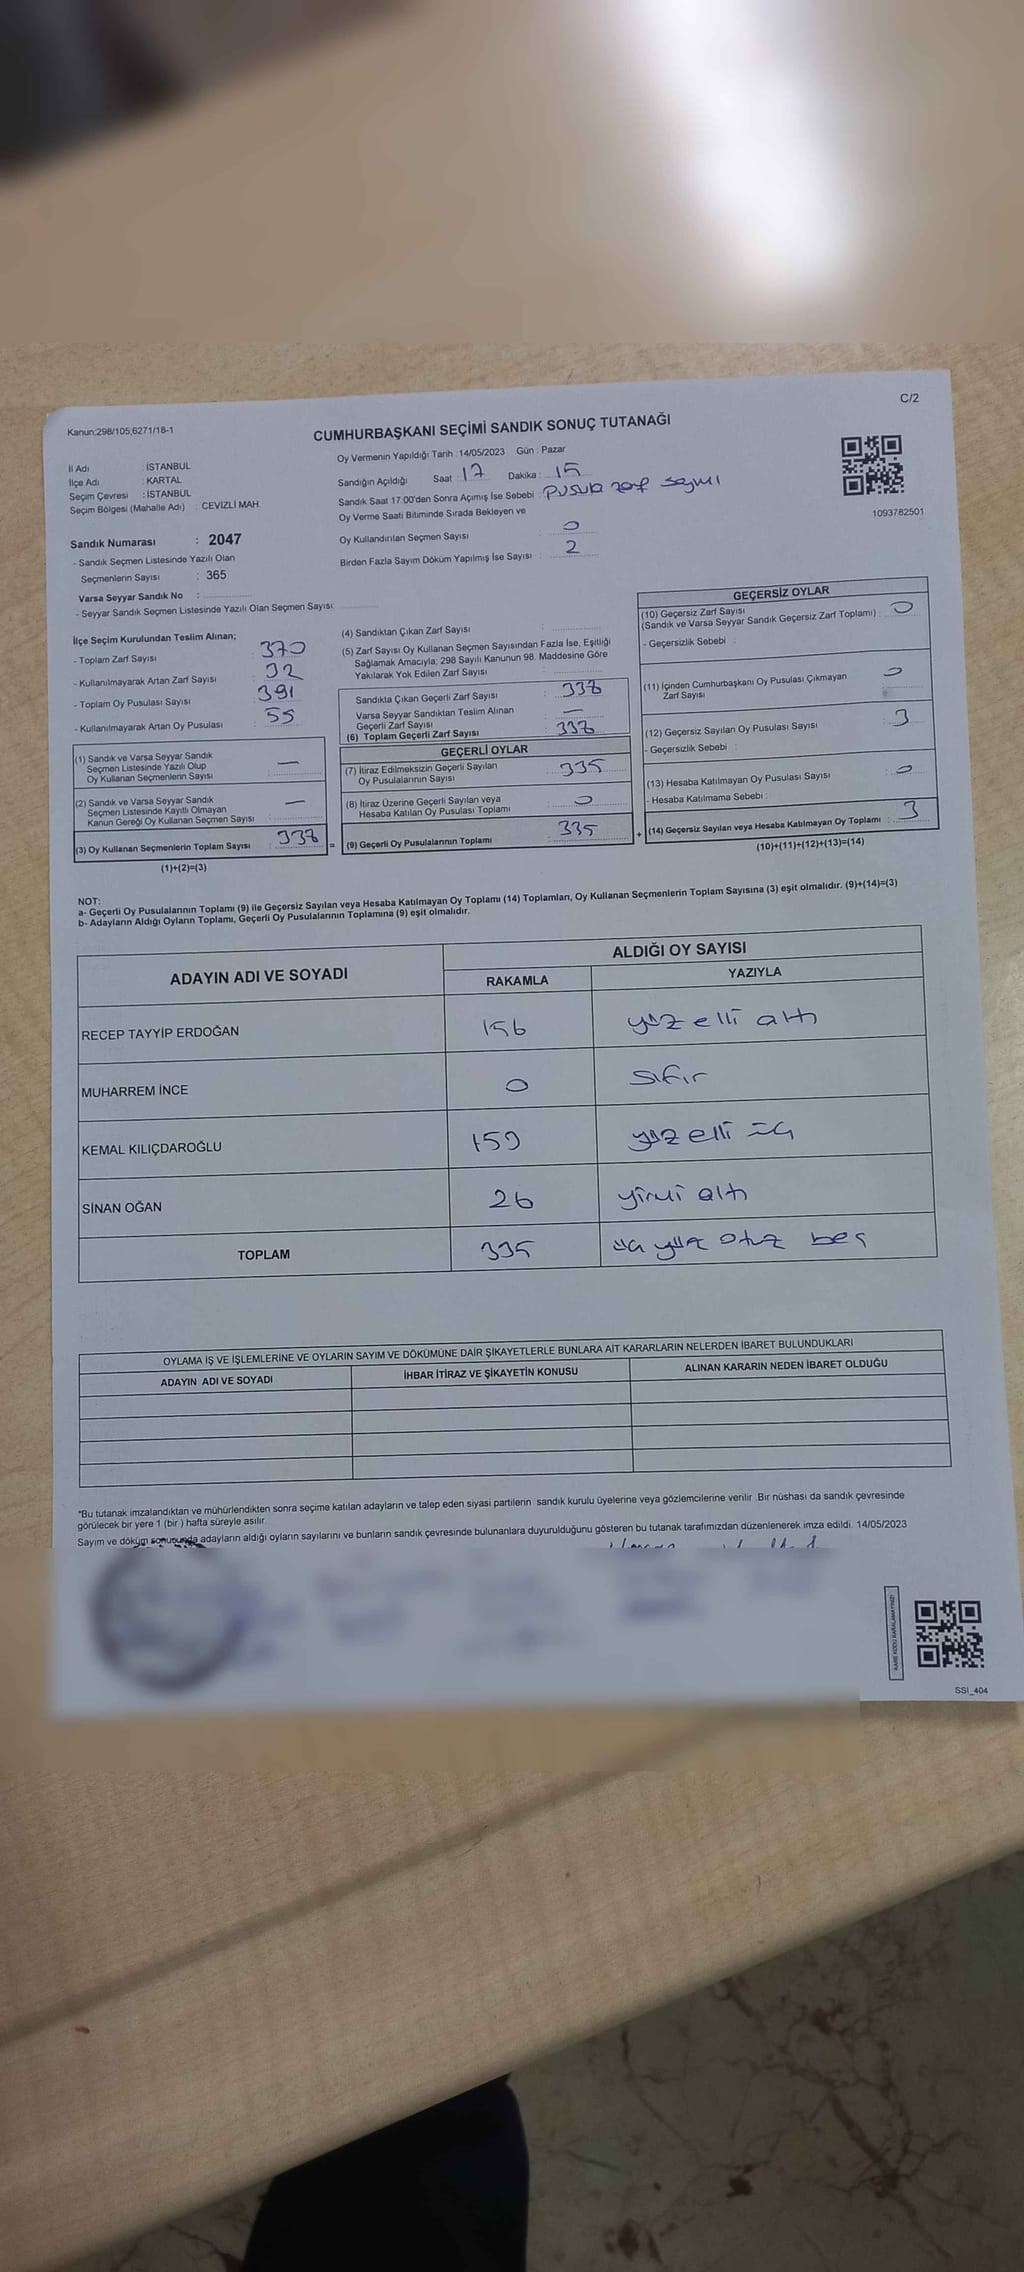 C/2
Kanun:298/105;6271/18-1
CUMHURBAŞKANI SEÇİMİ SANDIK SONUÇ TUTANAĞI
Oy Vermenin Yapıldığı Tarih : 14/05/2023 Gün : Pazar
İl Adı : İSTANBUL
İlçe Adı : KARTAL
Seçim Çevresi : İSTANBUL
Seçim Bölgesi (Mahalle Adı) : CEVİZLİ MAH.
Sandığın Açıldığı Saat : 17 Dakika : 15
Sandık Saat 17:00'den Sonra Açılmış İse Sebebi : Pusula zarf sayımı
Oy Verme Saati Bitiminde Sırada Bekleyen ve
Oy Kullandırılan Seçmen Sayısı : 0
Birden Fazla Sayım Döküm Yapılmış İse Sayısı : 2
1093782501
Sandık Numarası : 2047
- Sandık Seçmen Listesinde Yazılı Olan
Seçmenlerin Sayısı : 365
Varsa Seyyar Sandık No :
- Seyyar Sandık Seçmen Listesinde Yazılı Olan Seçmen Sayısı:
İlçe Seçim Kurulundan Teslim Alınan;
- Toplam Zarf Sayısı : 370
- Kullanılmayarak Artan Zarf Sayısı : 32
- Toplam Oy Pusulası Sayısı : 391
- Kullanılmayarak Artan Oy Pusulası : 55
(1) Sandık ve Varsa Seyyar Sandık
Seçmen Listesinde Yazılı Olup
Oy Kullanan Seçmenlerin Sayısı : —
(2) Sandık ve Varsa Seyyar Sandık
Seçmen Listesinde Kayıtlı Olmayan
Kanun Gereği Oy Kullanan Seçmen Sayısı : —
(3) Oy Kullanan Seçmenlerin Toplam Sayısı : 338 =
(1)+(2)=(3)
(4) Sandıktan Çıkan Zarf Sayısı :
(5) Zarf Sayısı Oy Kullanan Seçmen Sayısından Fazla İse, Eşitliği
Sağlamak Amacıyla; 298 Sayılı Kanunun 98. Maddesine Göre
Yakılarak Yok Edilen Zarf Sayısı :
Sandıkta Çıkan Geçerli Zarf Sayısı : 338
Varsa Seyyar Sandıktan Teslim Alınan
Geçerli Zarf Sayısı : —
(6) Toplam Geçerli Zarf Sayısı : 338
GEÇERLİ OYLAR
(7) İtiraz Edilmeksizin Geçerli Sayılan
Oy Pusulalarının Sayısı : 335
(8) İtiraz Üzerine Geçerli Sayılan veya
Hesaba Katılan Oy Pusulası Toplamı : 0
(9) Geçerli Oy Pusulalarının Toplamı : 335 +
GEÇERSİZ OYLAR
(10) Geçersiz Zarf Sayısı
(Sandık ve Varsa Seyyar Sandık Geçersiz Zarf Toplamı) : 0
- Geçersizlik Sebebi :
(11) İçinden Cumhurbaşkanı Oy Pusulası Çıkmayan
Zarf Sayısı : 0
(12) Geçersiz Sayılan Oy Pusulası Sayısı : 3
- Geçersizlik Sebebi :
(13) Hesaba Katılmayan Oy Pusulası Sayısı : 0
- Hesaba Katılmama Sebebi :
(14) Geçersiz Sayılan veya Hesaba Katılmayan Oy Toplamı : 3
(10)+(11)+(12)+(13)=(14)
NOT:
a- Geçerli Oy Pusulalarının Toplamı (9) ile Geçersiz Sayılan veya Hesaba Katılmayan Oy Toplamı (14) Toplamları, Oy Kullanan Seçmenlerin Toplam Sayısına (3) eşit olmalıdır. (9)+(14)=(3)
b- Adayların Aldığı Oyların Toplamı, Geçerli Oy Pusulalarının Toplamına (9) eşit olmalıdır.
ADAYIN ADI VE SOYADI ALDIĞI OY SAYISI
RAKAMLA YAZIYLA
RECEP TAYYİP ERDOĞAN 156 yüz elli altı
MUHARREM İNCE 0 sıfır
KEMAL KILIÇDAROĞLU yüz elli üç
SİNAN OĞAN 26 yirmi altı
TOPLAM 335 üç yüz otuz beş
OYLAMA İŞ VE İŞLEMLERİNE VE OYLARIN SAYIM VE DÖKÜMÜNE DAİR ŞİKAYETLERLE BUNLARA AİT KARARLARIN NELERDEN İBARET BULUNDUKLARI
ADAYIN ADI VE SOYADI İHBAR İTİRAZ VE ŞİKAYETİN KONUSU ALINAN KARARIN NEDEN İBARET OLDUĞU
*Bu tutanak imzalandıktan ve mühürlendikten sonra seçime katılan adayların ve talep eden siyasi partilerin sandık kurulu üyelerine veya gözlemcilerine verilir. Bir nüshası da sandık çevresinde
görülecek bir yere 1 (bir ) hafta süreyle asılır.
Sayım ve döküm sonucunda adayların aldığı oyların sayılarını ve bunların sandık çevresinde bulunanlara duyurulduğunu gösteren bu tutanak tarafımızdan düzenlenerek imza edildi. 14/05/2023
KARE KODU KARALAMAYINIZ!
SSI_404